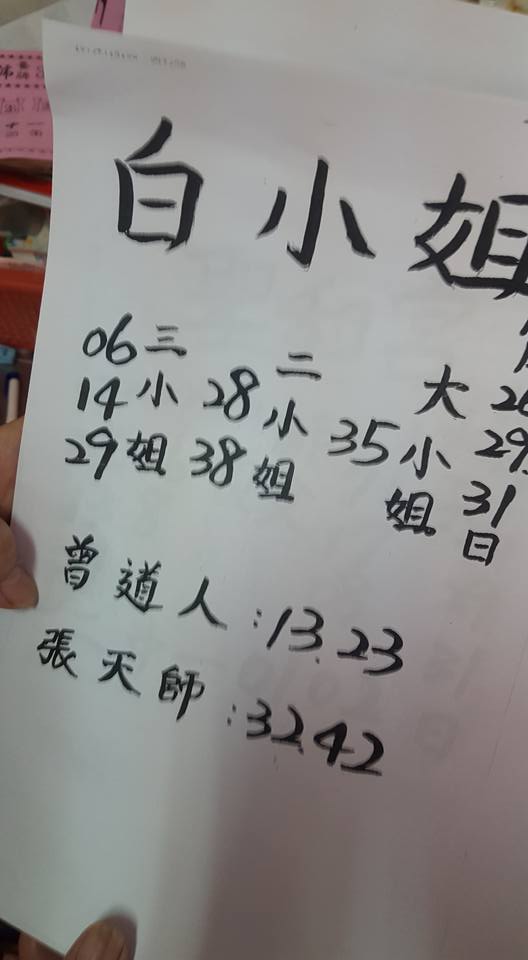 白小姐
26
29
31
日
大小姐
35
二小姐
28
38
三小姐
06
14
29
曾道人:13.23
張天師:32.42